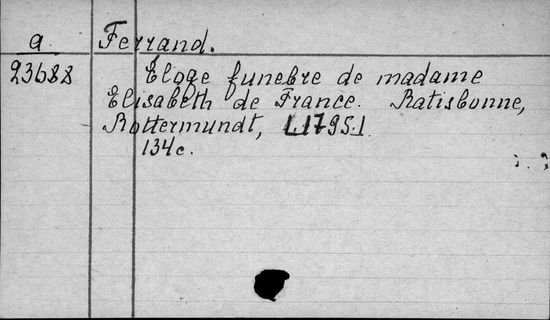 a Ferrand.
23688 Eloge funebre de madame
Elisabeth de France. Ratisbonne,
Rottermundt, [1795.]
134c.